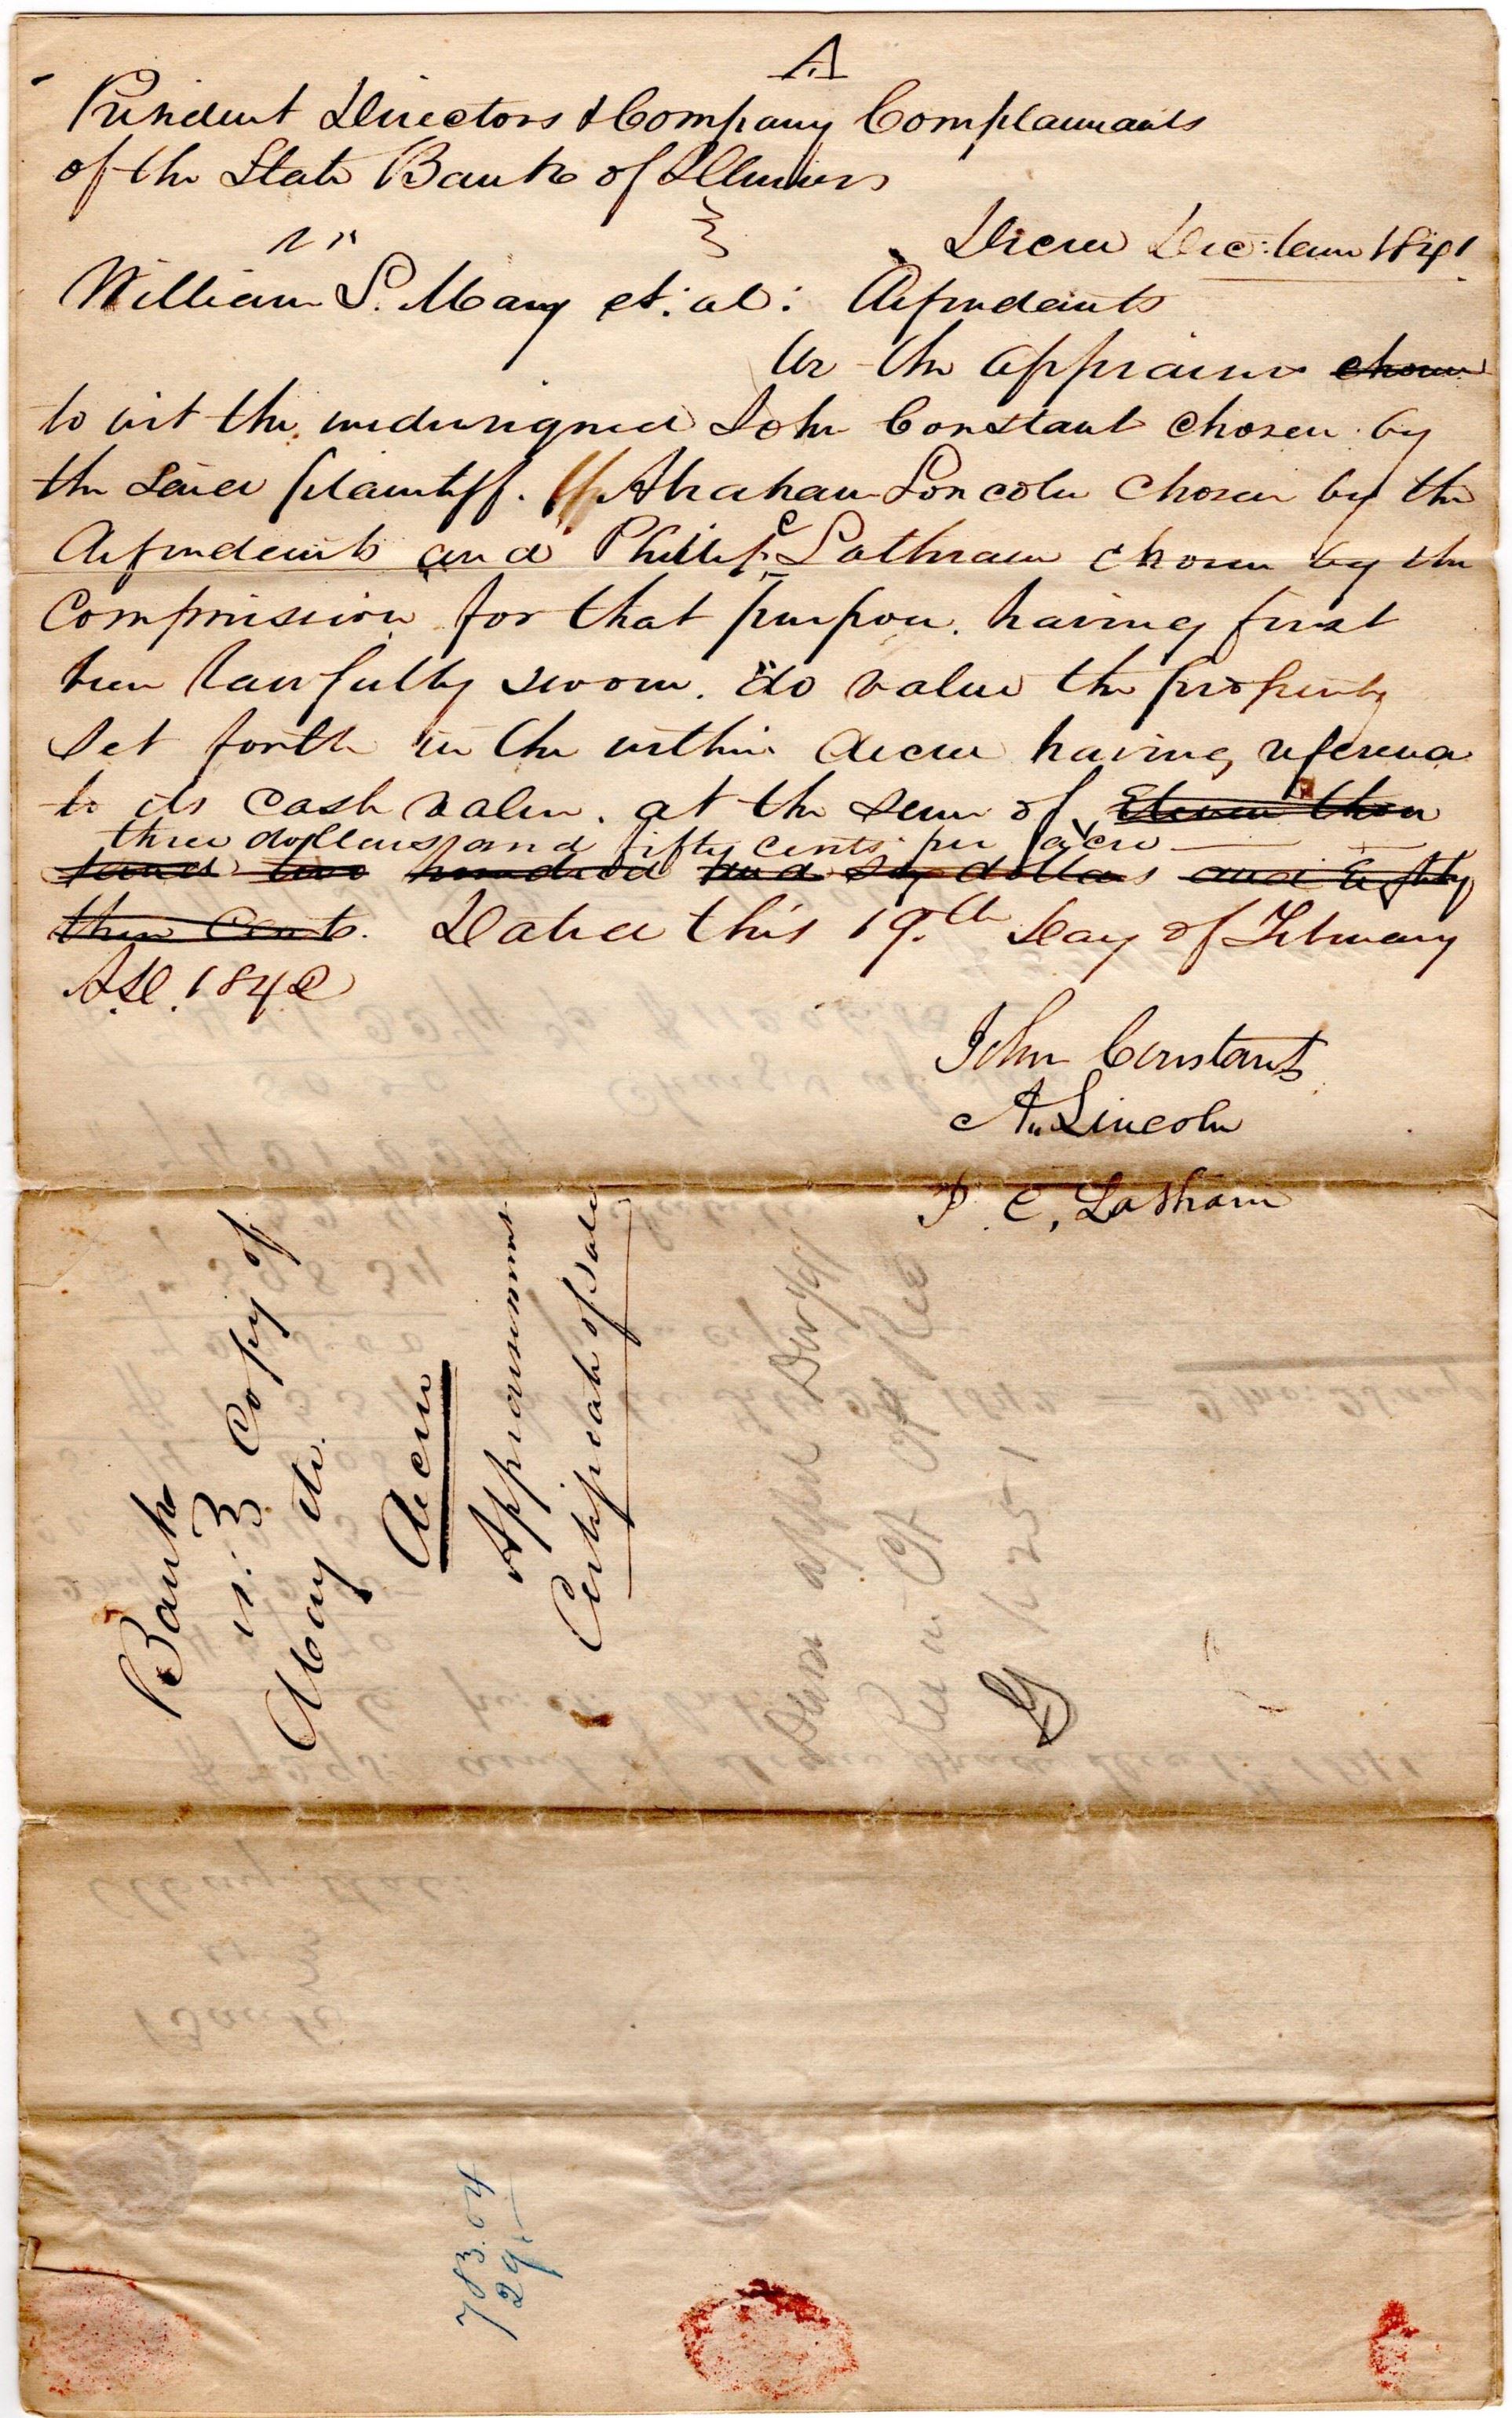 A
President Directors & Company Complainants
of the State Bank of Illinois
vs
Decree Dec: term 1841
William L. May et. al: Defendants
We the appraisers chosen
to wit the undersigned John Constant chosen by
the said plaintiff. Abraham Lincoln chosen by the
defendants and Phillip C Lathram chosen by the
Commission for that purpose. having first
been lawfully sworn. do value the property
set forth in the within decree having reference
to its cash value. at the sum of Eleven thou
three dollars and fifty cents per acre
sand two hundred and dollars and Eighty
three Cents. Dated this 19.th day of February
A.D. 1842
John Constant
A. Lincoln
P. C. Latham
Bank
vs. Copy of
May etc.
decree
Appraisement
Certificate of sale
1251
783.04
29.